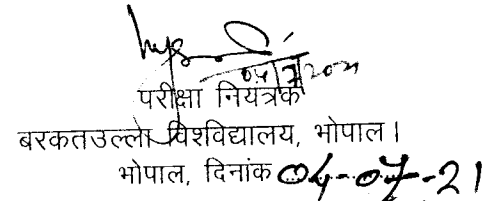 04/7/2021
परीक्षा नियंत्रक
बरकतउल्ला विश्वविद्यालय, भोपाल।
भोपाल, दिनांक 04-07-21